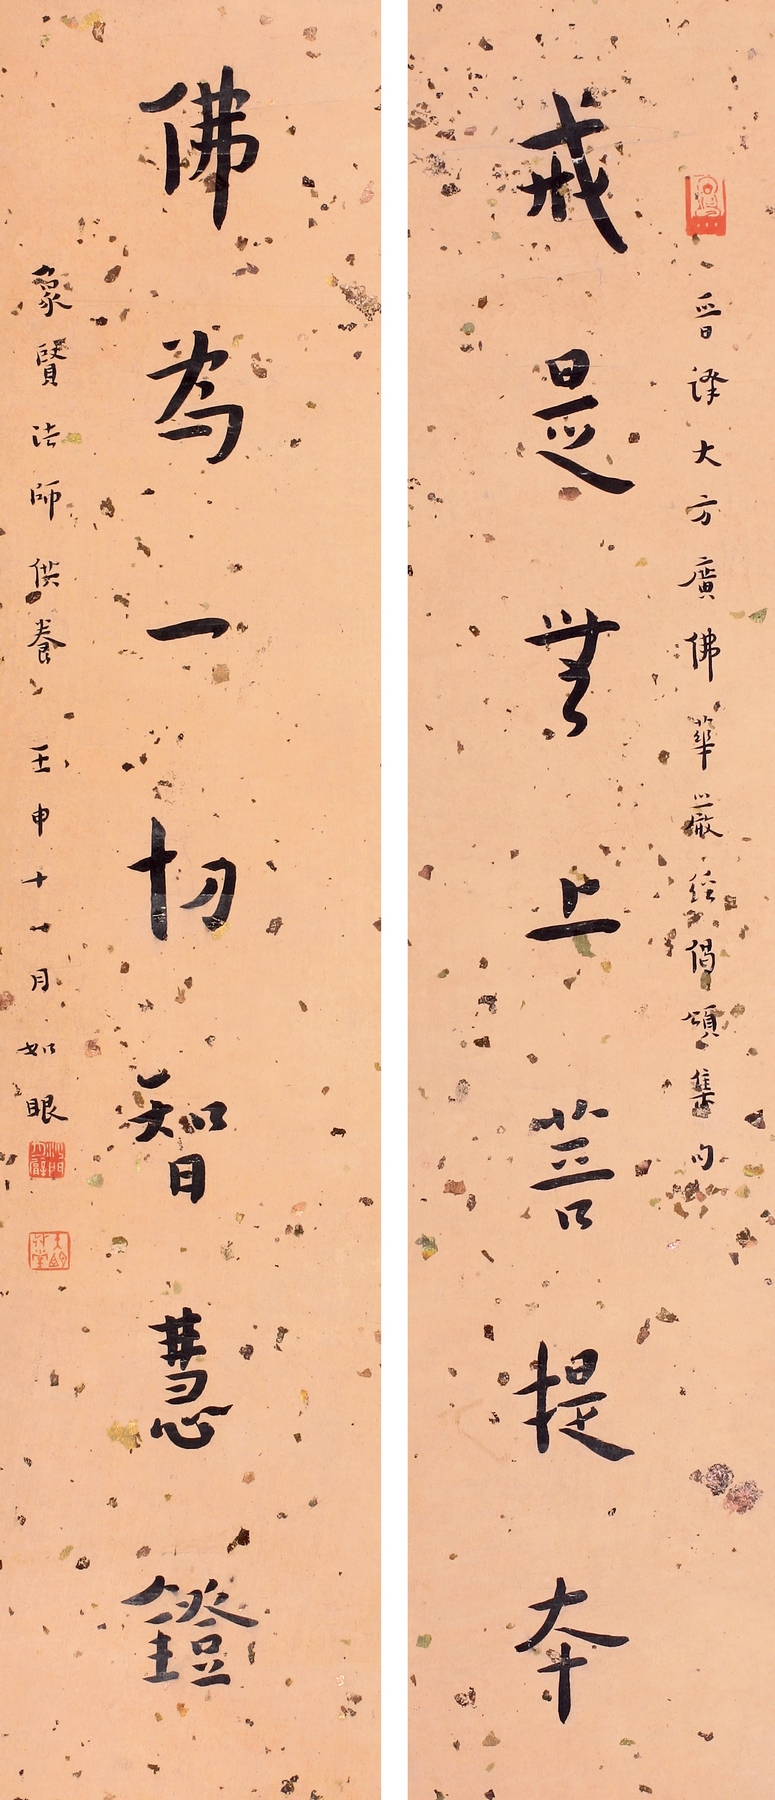 晉譯大方廣佛華嚴經偈頌集句
戒是無上菩提本
佛為一切智慧鐙
象賢法師供養 壬申十一月 如眼